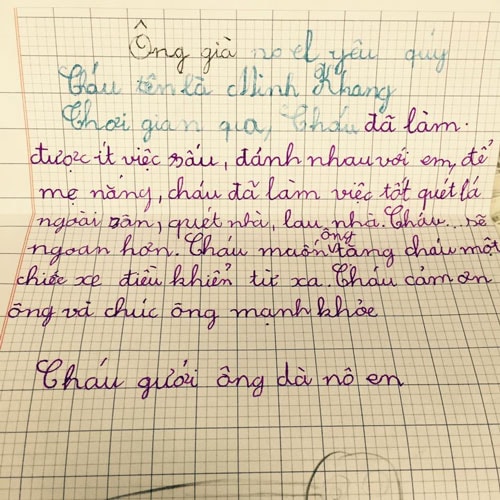 Ông già no el yêu quý
Cháu tên là Minh Khang
Thời gian qua, Cháu đã làm.
được ít việc sấu, đánh nhau với em, để
mẹ nắng, cháu đã làm việc tốt quét lá
ngoài sân, quét nhà, lau nhà. Cháu... sẽ
ngoan hơn. Cháu muốn ông tăng cháu một
chiếc xe điều khiển từ xa. Cháu cảm ơn
ông và chúc ông mạnh khỏe
Cháu gưới ông dà nô en